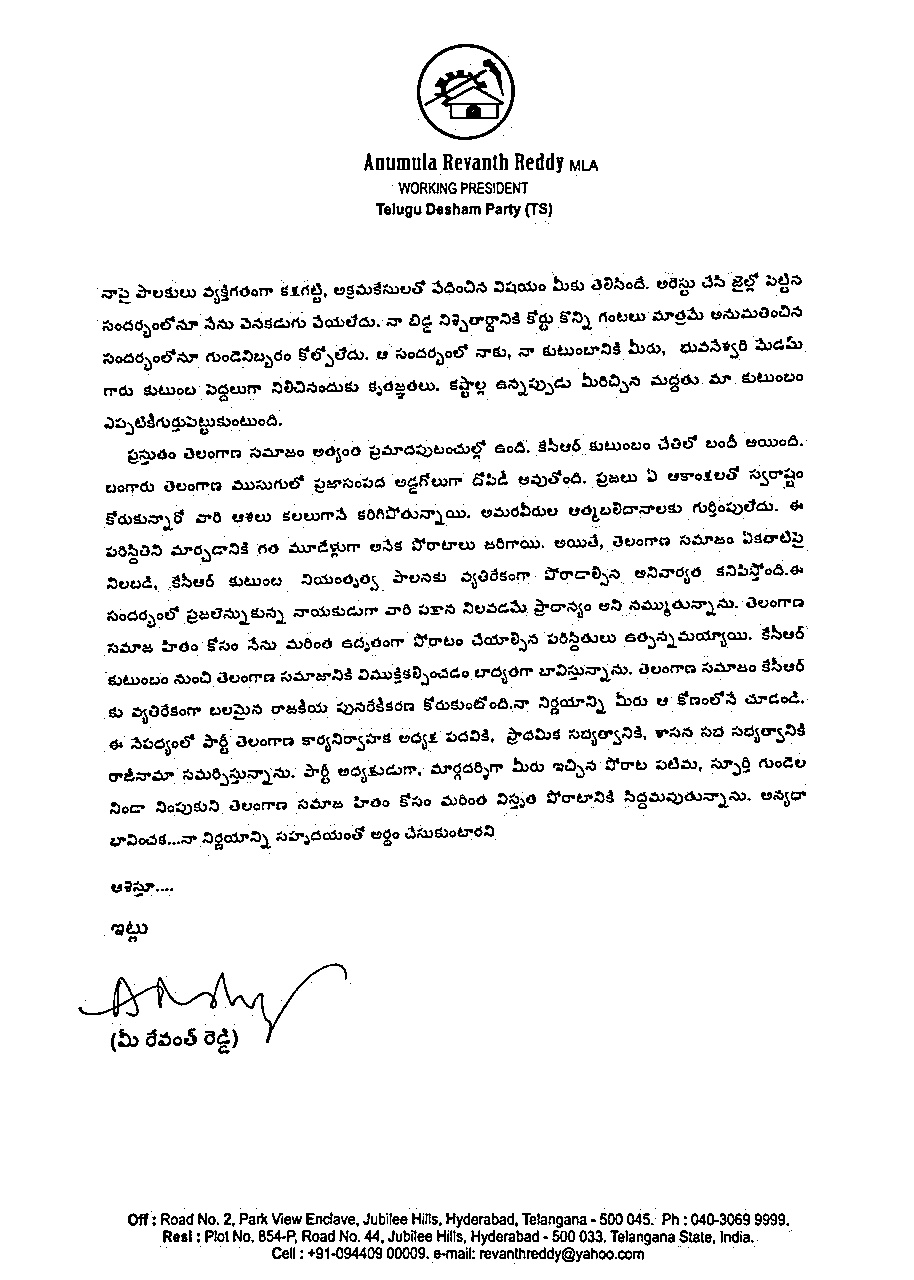 Anumula Revanth Reddy MLA
WORKING PRESIDENT
Telugu Desham Party (TS)
నాపై పాలకులు వ్యక్తిగతంగా కక్షగట్టి, అక్రమకేసులతో వేధించిన విషయం మీకు తెలిసిందే. అరెస్టు చేసి జైల్లో పెట్టిన
సందర్భంలోనూ నేను వెనకడుగు వేయలేదు. నా బిడ్డ నిశ్చితార్థానికి కోర్టు కొన్ని గంటలు మాత్రమే అనుమతించిన
సందర్భంలోనూ గుండెనిబ్బరం కోల్పోలేదు. ఆ సందర్భంలో నాకు, నా కుటుంబానికి మీరు, భువనేశ్వరి మేడమ్
గారు కుటుంబ పెద్దలుగా నిలిచినందుకు కృతజ్ఞతలు. కష్టాల్ల ఉన్నప్పుడు మీరిచ్చిన మద్దతు మా కుటుంబం
ఎప్పటికీగుర్తుపెట్టుకుంటుంది.
ప్రస్తుతం తెలంగాణ సమాజం అత్యంత ప్రమాదపుటంచుల్లో ఉంది. కేసీఆర్ కుటుంబం చేతిలో బందీ అయింది.
బంగారు తెలంగాణ ముసుగులో ప్రజాసంపద అడ్డగోలుగా దోపిడీ అవుతోంది. ప్రజలు ఏ ఆకాంక్షలతో స్వరాష్ట్రం
కోరుకున్నారో వారి ఆశలు కలలుగానే కరిగిపోతున్నాయి. అమరవీరుల ఆత్మబలిదానాలకు గుర్తింపులేదు. ఈ
పరిస్థితిని మార్చడానికి గత మూడేళ్లుగా అనేక పోరాటాలు జరిగాయి. అయితే, తెలంగాణ సమాజం ఏకతాటిపై
నిలబడి, కేసీఆర్ కుటుంబ నియంతృత్వ పాలనకు వ్యతిరేకంగా పోరాడాల్సిన అనివార్యత కనిపిస్తోంది.ఈ
సందర్భంలో ప్రజలెన్నుకున్న నాయకుడుగా వారి పక్షాన నిలవడమే ప్రాధాన్యం అని నమ్ముతున్నాను. తెలంగాణ
సమాజ హితం కోసం నేను మరింత ఉధృతంగా పోరాటం చేయాల్సిన పరిస్థితులు ఉత్పన్నమయ్యాయి. కేసీఆర్
కుటుంబం నుంచి తెలంగాణ సమాజానికి విముక్తికల్పించడం బాధ్యతగా భావిస్తున్నాను. తెలంగాణ సమాజం కేసీఆర్
కు వ్యతిరేకంగా బలమైన రాజకీయ పునరేకీకరణ కోరుకుంటోంది.నా నిర్ణయాన్ని మీరు ఆ కోణంలోనే చూడండి.
ఈ నేపథ్యంలో పార్టీ తెలంగాణ కార్యనిర్వాహక అధ్యక్ష పదవికి, ప్రాథమిక సభ్యత్వానికి, శాసన సభ సభ్యత్వానికి
రాజీనామా సమర్పిస్తున్నాను. పార్టీ అధ్యక్షుడుగా, మార్గదర్శిగా మీరు ఇచ్చిన పోరాట పటిమ, స్ఫూర్తి గుండెల
నిండా నింపుకుని తెలంగాణ సమాజ హితం కోసం మరింత విస్తృత పోరాటానికి సిద్ధమవుతున్నాను. అన్యధా
భావించక...నా నిర్ణయాన్ని సహృదయంతో అర్థం చేసుకుంటారని
ఆశిస్తూ....
ఇట్లు
(మీ రేవంత్ రెడ్డి)
Off : Road No. 2, Park View Enclave, Jubilee Hills, Hyderabad, Telangana - 500 045. Ph : 040-3069 9999.
Resi : Plot No. 854-P, Road No. 44, Jubilee Hills, Hyderabad - 500 033. Telangana State, India.
Cell : +91-094409 00009. e-mail: revanthreddy@yahoo.com